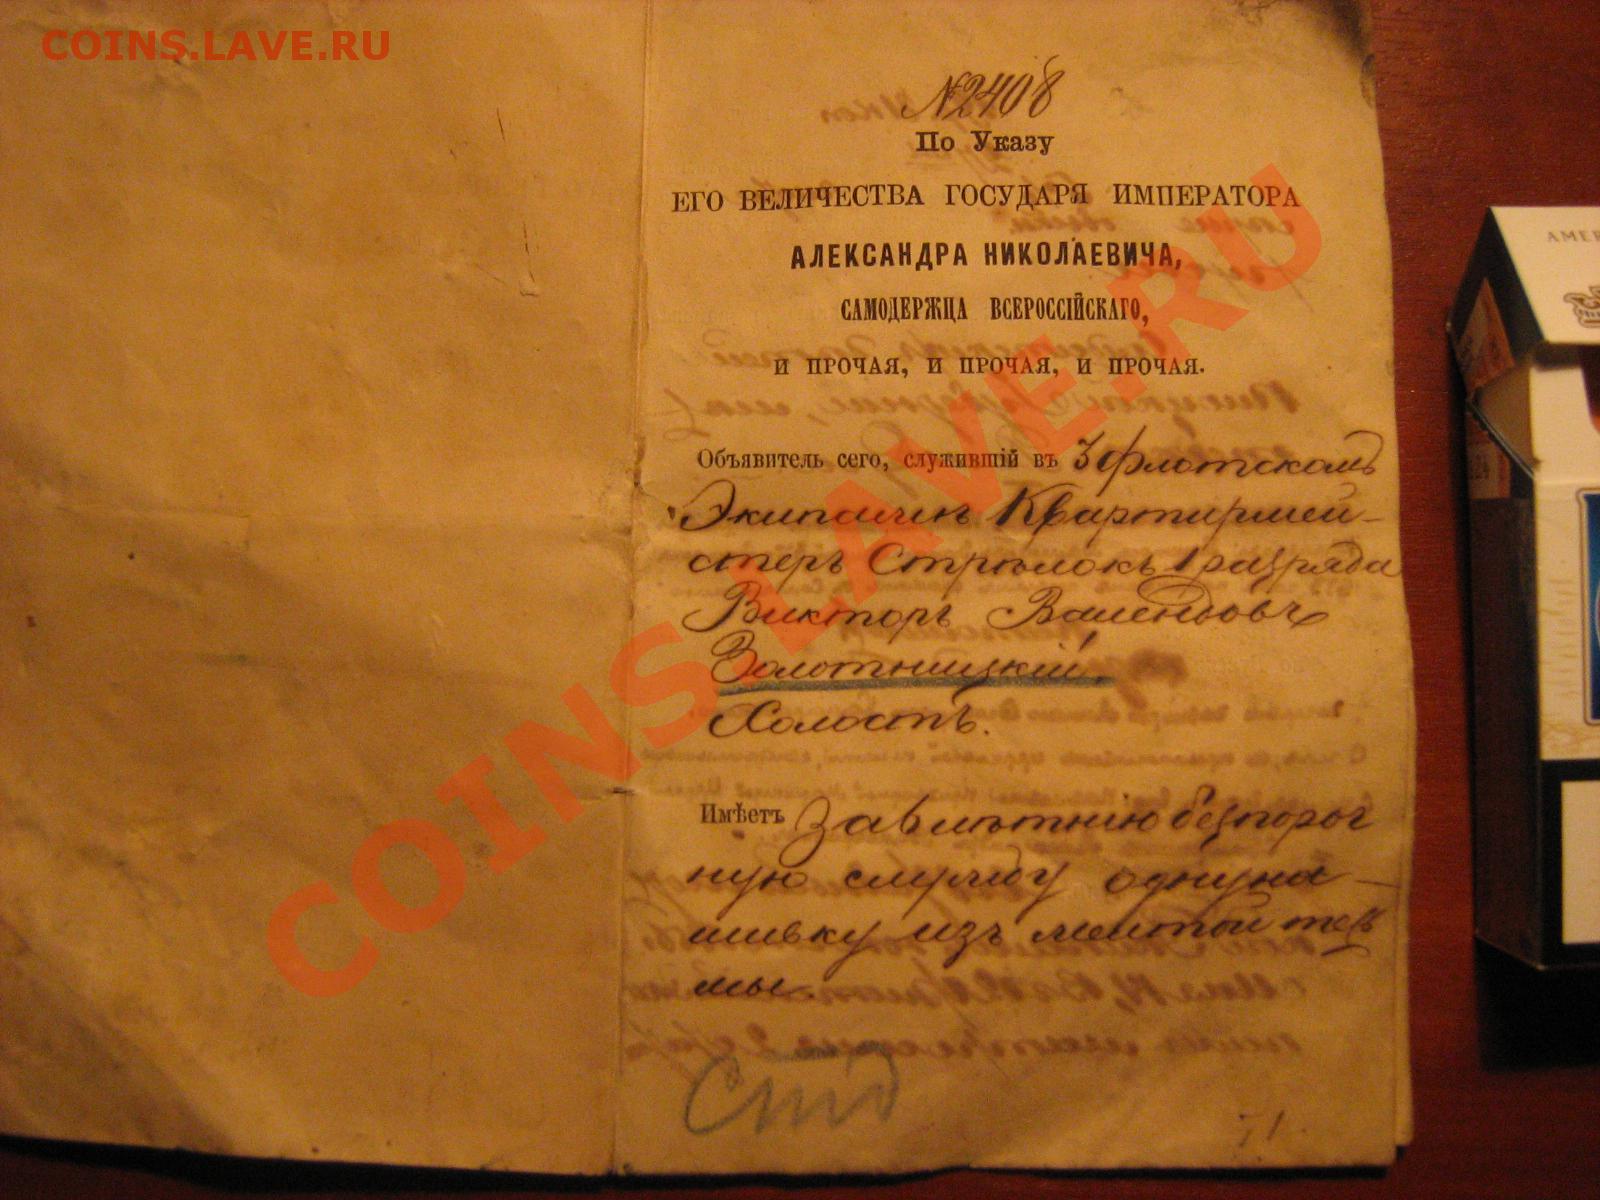 COINS.LAVE.RU
№2408
По Указу
ЕГО ВЕЛИЧЕСТВА ГОСУДАРЯ ИМПЕРАТОРА
АЛЕКСАНДРА НИКОЛАЕВИЧА,
САМОДЕРЖЦА ВСЕРОССІЙСКАГО,
И ПРОЧАЯ, И ПРОЧАЯ, И ПРОЧАЯ.
Объявитель сего, служившій въ 3 Флотскомъ
Экипажѣ Квартирмей-
стеръ Стрѣлокъ 1 разряда
Викторъ
Золотницкій.
Холостъ.
Имѣетъ За 6 лѣтнію безпороч
ную службу одну на-
шивку изъ желтой тесь
мы.
COINS.LAVE.RU
AMER